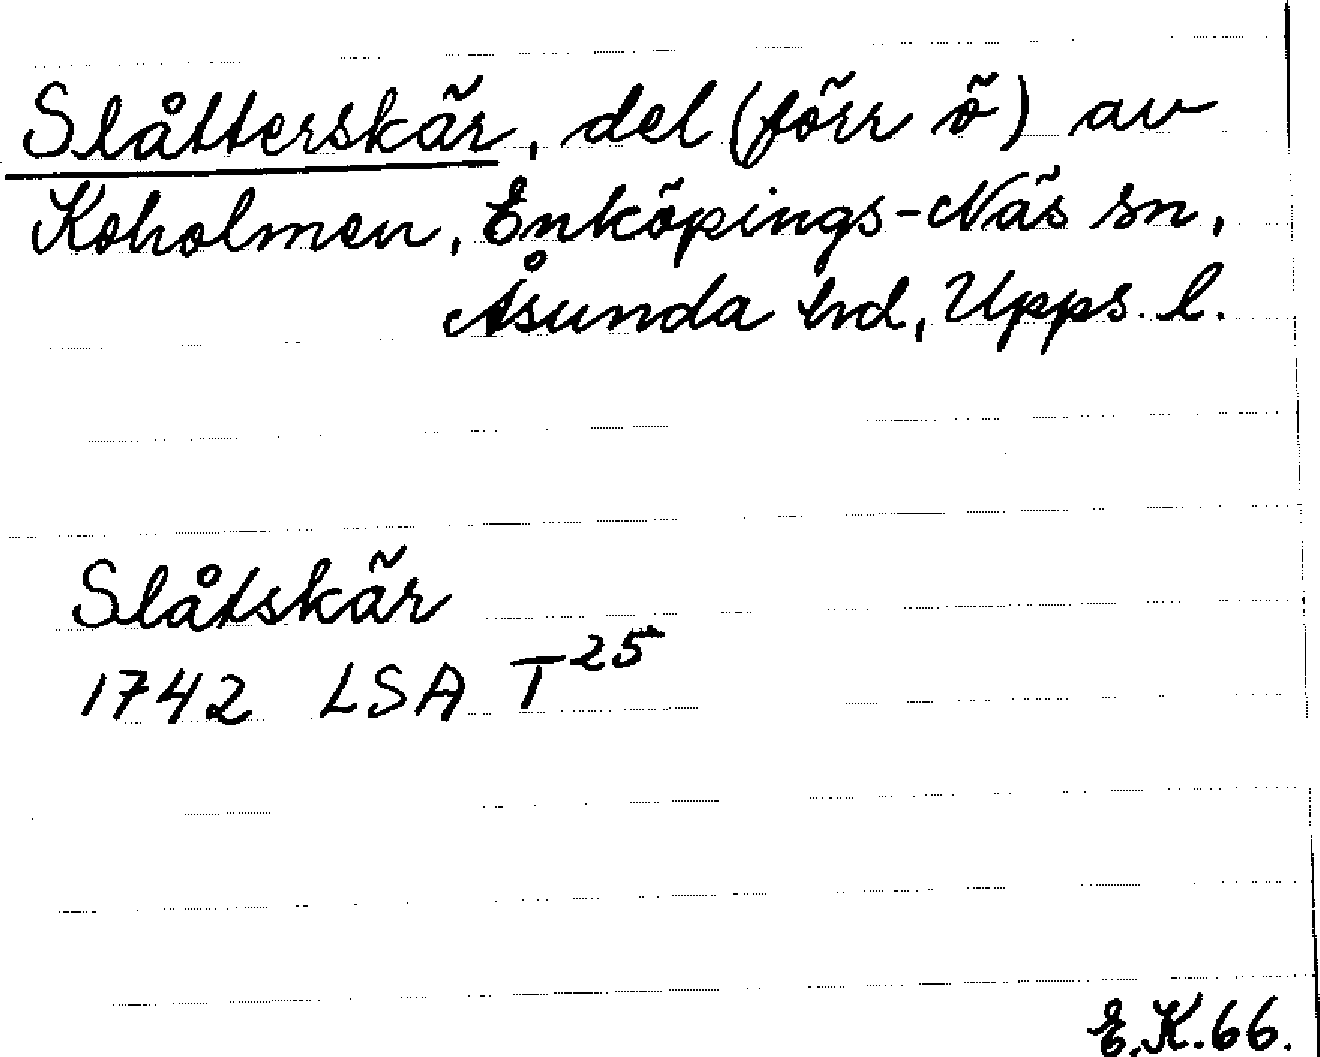 Slåtterskär, del (förr ö) av
Koholmen, Enköpings-Näs sn,
Åsunda hd, Upps. l.
Slåtskär
1742 LSA T 25
E.K.66.